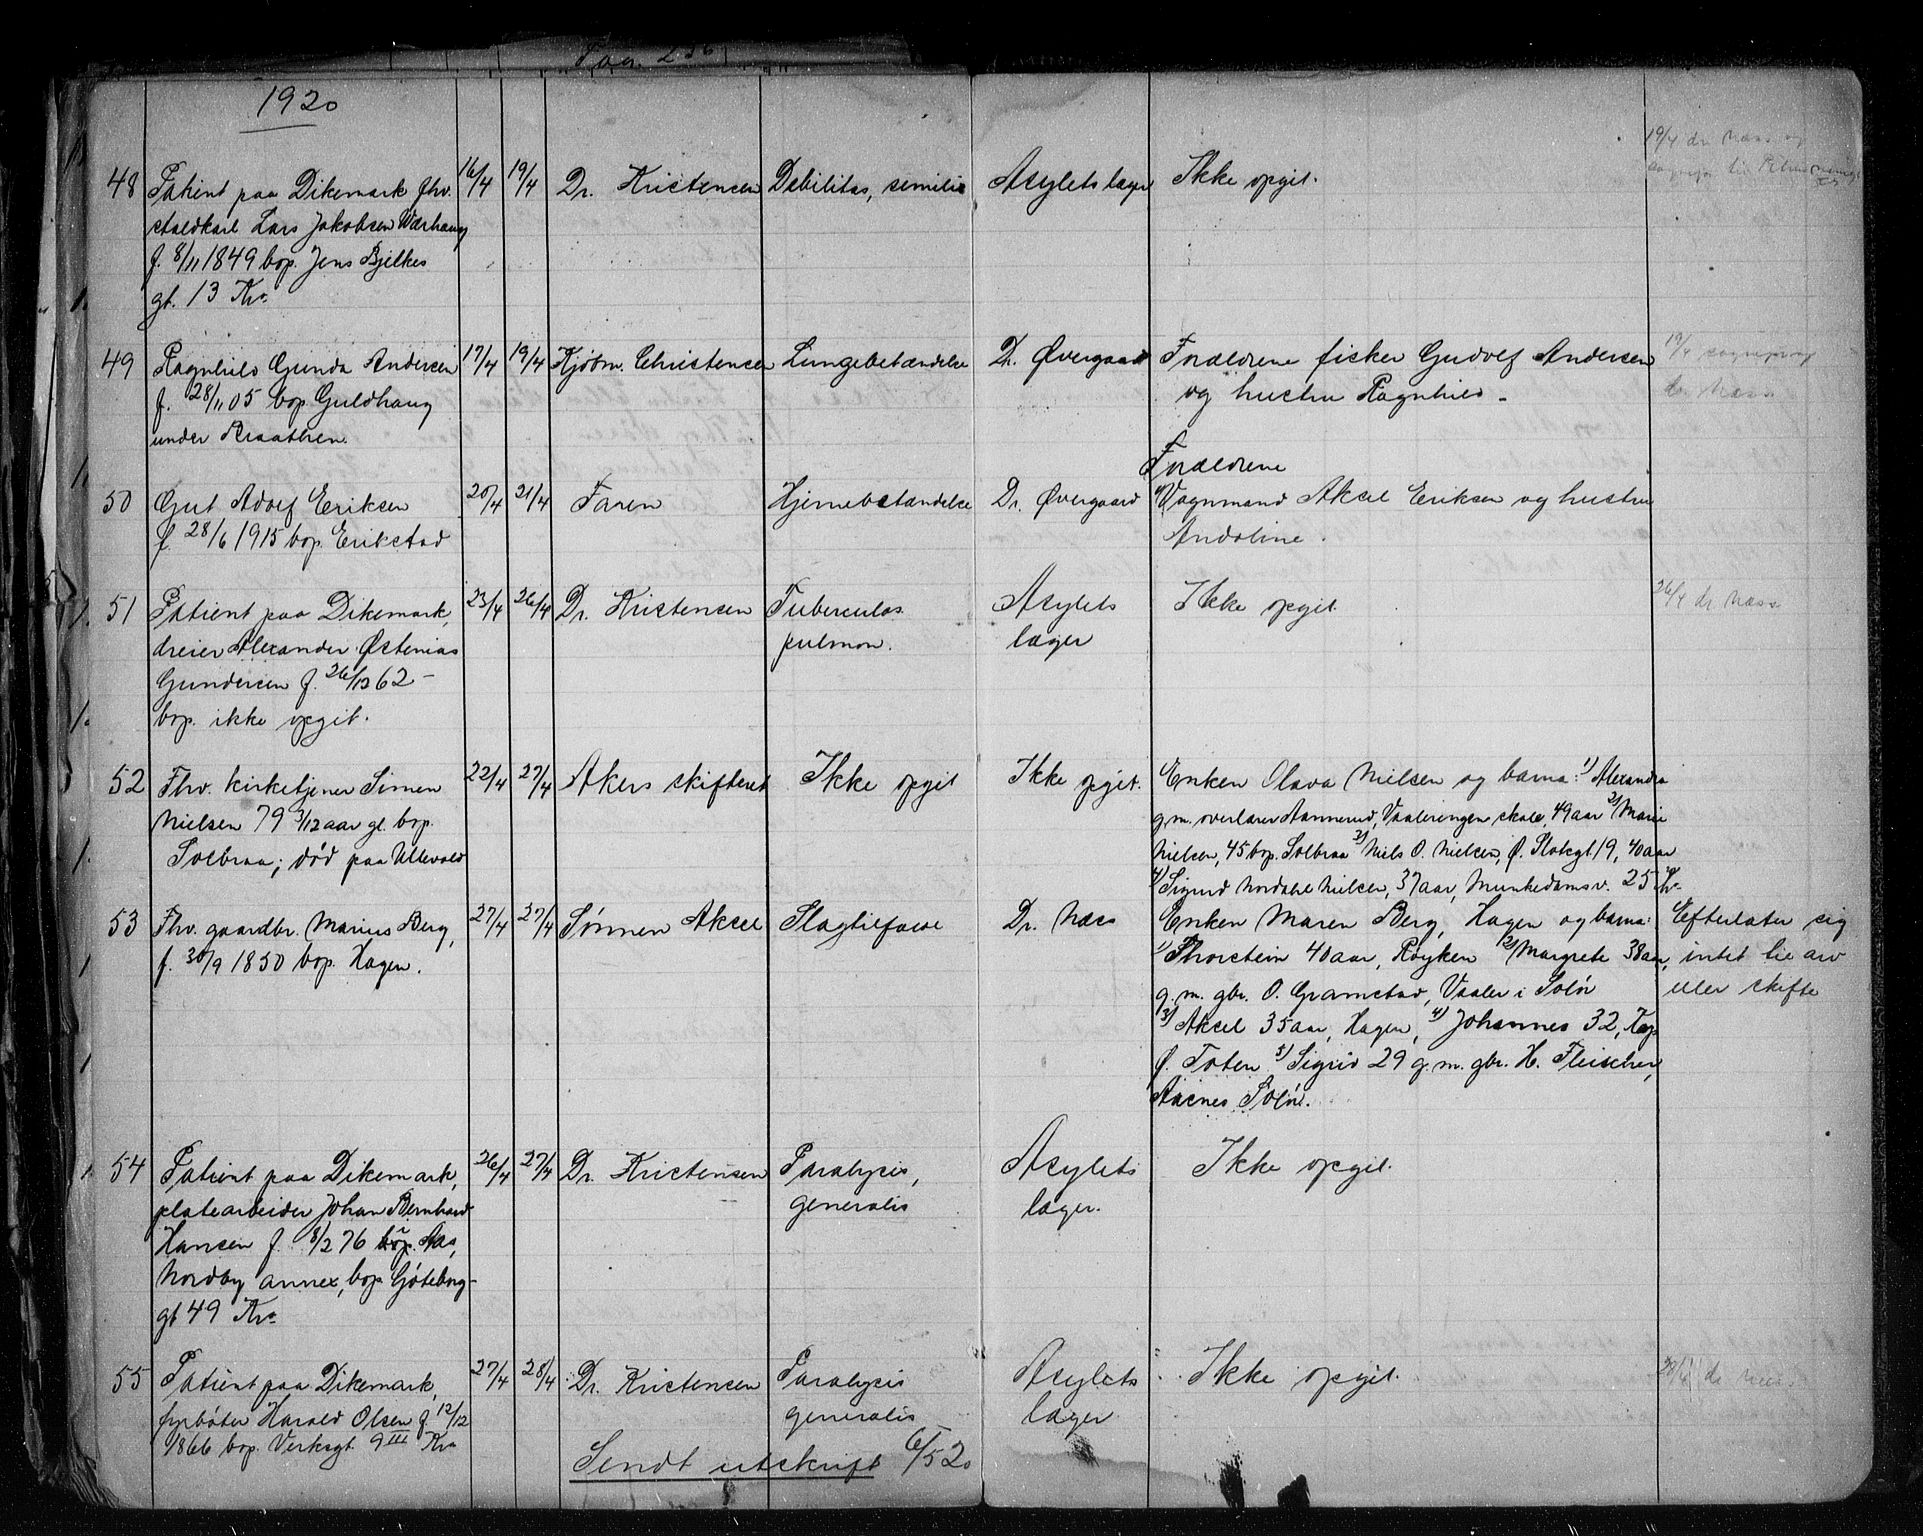 Pag. 236
1920
48 Patient paa Dikemark fhv. 16/4 19/4 Dr. Kristensen Debilitas, senilis Asylets læge Ikke opgit. 19/4 dr. Næss og
staldkarl Lars Jakobsen Værhaug
f. 8/11 1849 bop. Jens Bjelkes
gt. 13 Kr.a
49 Ragnhild Gunda Andersen 17/4 19/4 Kjøbm. Christensen Lungebetændelse Dr. Øvergaard Forældrene fisker Gudolf Andersen 19/4
f. 28/11 05 bop. Guldhaug og hustru Ragnhild. dr. Næss
under Braathen.
Forældrene
50 Gut Adolf Eriksen 20/4 21/4 Faren Hjernebetændelse Dr. Øvergaard Vognmand Aksel Eriksen og hustru
f. 28/6 1915 bop. Erikstad Andoline.
51 Patient paa Dikemark, 23/4 26/4 Dr. Kristensen Tuberculos. Asylets Ikke opgit. 26/4 dr. Næss
dreier Alexander Østenius pulmon. læger
Gundersen f. 26/12 62 –
bop. ikke opgit.
52 Fhv. kirketjener Simen 22/4 27/4 Akers skifteret Ikke opgit Ikke opgit. Enken Olava Nielsen og barna: 1) Alexandra
Nielsen 79 3/12 aar gl. bop. g.m. overlærer Aannerud, Vaalerengen skole, 49 aar 2) Marie
Solbraa; død paa Ullevold Nielsen, 45 bop. Solbraa 3) Niels O. Nielsen, Ø. Slotsgt 19, 40 aar
4) Sigurd Nordahl Nielsen, 37 aar, Munkedamsv. 25 Kr.a
53 Fhv. gaardbr. Marius Berg, 27/4 27/4 Sønnen Aksel Slagtilfælde Dr. Næss Enken Maren Berg, Hagen og barna: Efterlater sig
f. 30/9 1850 bop. Hagen. 1) Thorstein 40 aar, Røyken 2) Margrete 38 aar, intet til arv
g. m. gbr. O. Gramstad, Vaaler i Solør eller skifte
3) Aksel 35 aar, Hagen, 4) Johannes 32, Kap
Ø. Toten 5) Sigrid 29 g. m. gbr. H. Fleischer,
Aasnes, Solør.
54 Patient paa Dikemark, 26/4 27/4 Dr. Kristensen Paralysis, Asylets Ikke opgit.
platearbeider Johan Bernhard generalis læger.
Hansen f. 8/2 76 bop. Aas,
Nordby annex, bop. Göteborg-
gt 49 Kr.a
55 Patient paa Dikemark, 27/4 28/4 Dr. Kristensen Paralysis Asylets Ikke opgit. 28/4 dr. Næss
fyrbøter Harald Olsen f. 12/12 generalis læger
1866 bop. Verksgt. 9 III Kr.a
Sendt utskrift 6/5 20